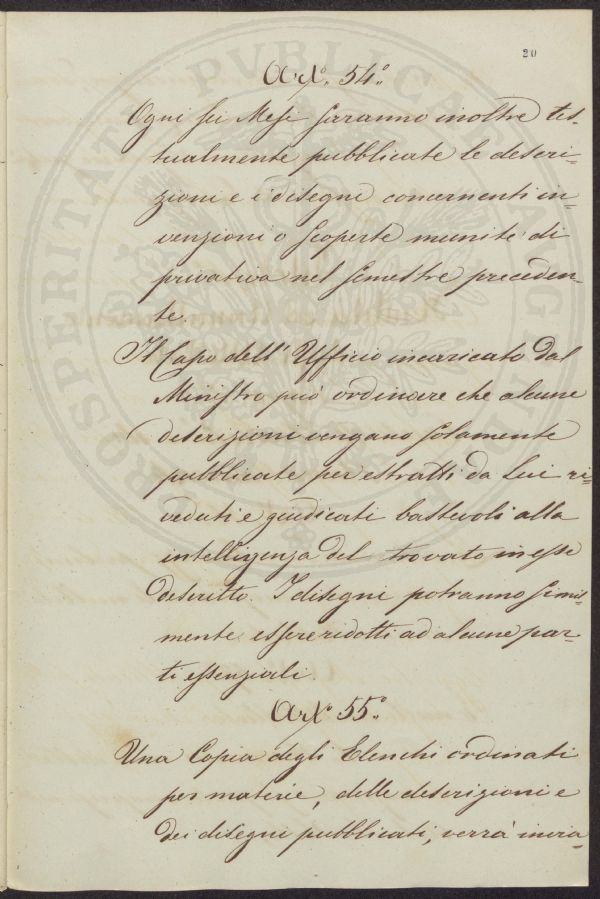 20
Art.° 54.°
Ogni sei Mesi saranno inoltre tes-
tualmente pubblicate le descri-
zioni e i disegni concernenti in-
venzioni o scoperte munite di
privativa nel semestre preceden-
te.
Il Capo dell' Ufficio incaricato dal
Ministro può ordinare che alcune
descrizioni vengano solamente
pubblicate per estratti da lui ri-
veduti e giudicati bastevoli alla
intelligenza del trovato in esse
descritto. I disegni potranno simil-
mente essere ridotti ad alcune par-
ti essenziali.
Art.° 55.°
Una Copia degli Elenchi ordinati
per materie, delle descrizioni e
dei disegni pubblicati, verrà invia-